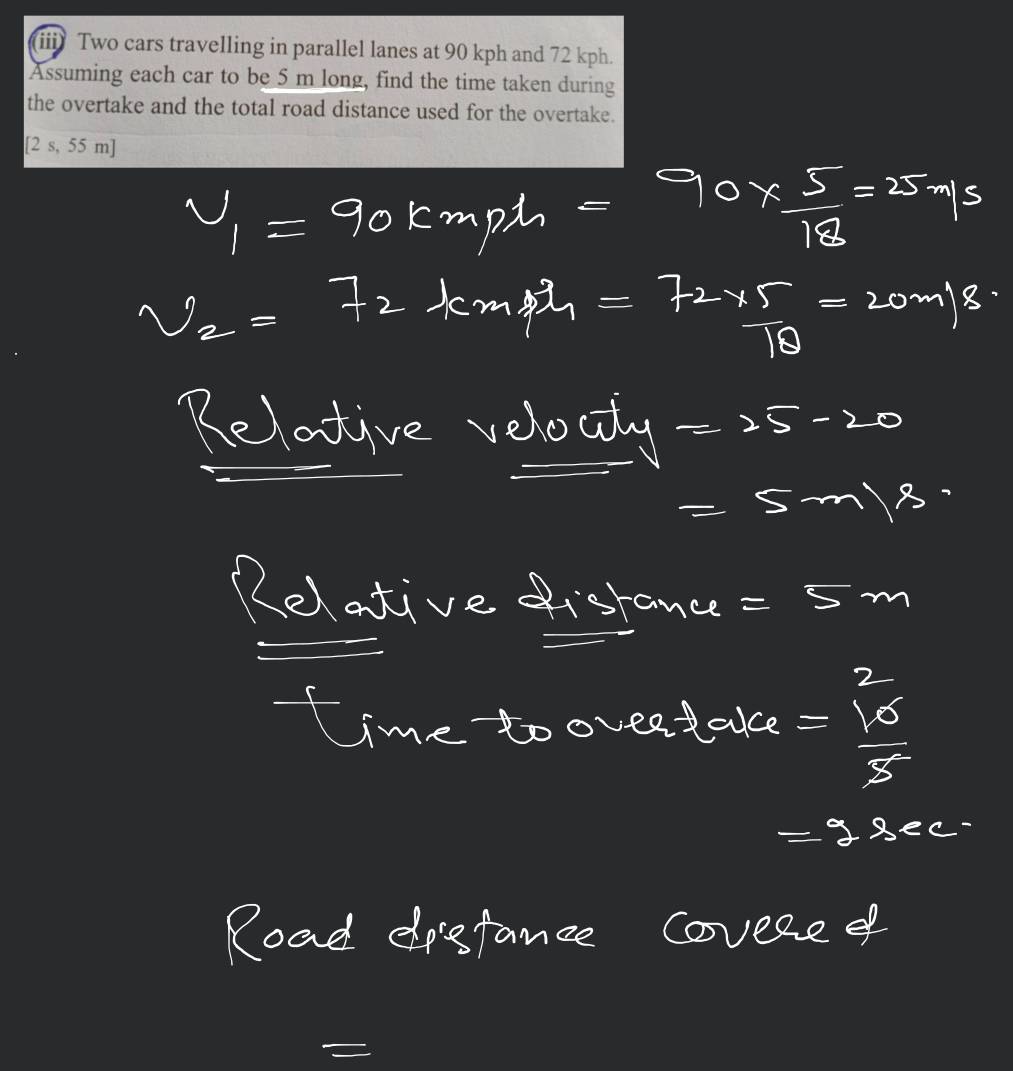 (iii) Two cars travelling in parallel lanes at 90 kph and 72 kph.
Assuming each car to be 5 m long, find the time taken during
the overtake and the total road distance used for the overtake.
[2 s, 55 m]
V₁ = 90 kmph = 90 × 5/18 = 25 m/s
V₂ = 72 kmph = 72×5/18 = 20m/s.
Relative velocity = 25 - 20
= 5 m/s.
Relative distance = 5 m
time to overtake = 10/5 2
= 2 sec.
Road distance covered
=